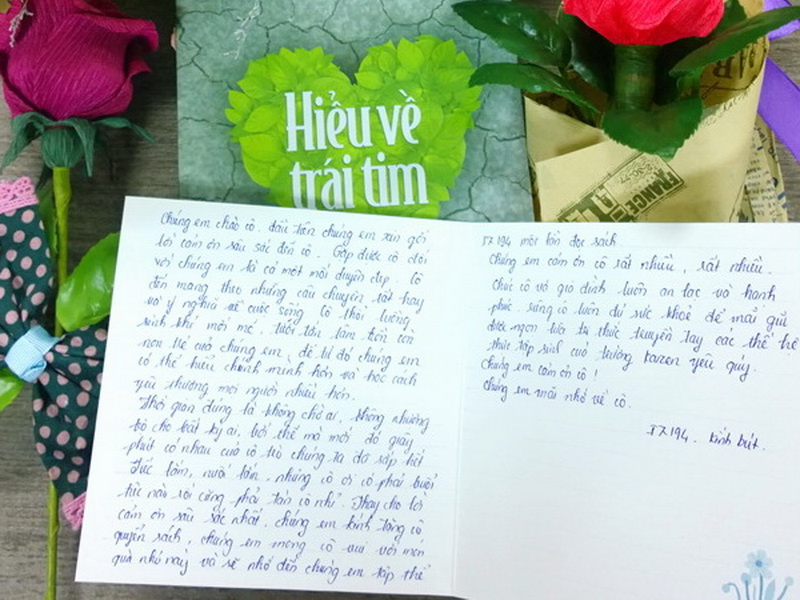 Hiểu về
trái tim
FRANCE
Chúng em chào cô. Đầu tiên chúng em xin gởi
lời cảm ơn sâu sắc đến cô. Gặp được cô đối
với chúng em là cả một mối duyên đẹp. Cô
đến mang theo những câu chuyện rất hay
và ý nghĩa về cuộc sống. Cô thổi luồng
sinh khí mới mẻ, tươi tắn tâm hồn còn
non trẻ của chúng em, để từ đó chúng em
có thể hiểu chính mình hơn và học cách
yêu thương mọi người nhiều hơn.
Thời gian đúng là không chờ ai, không nhường
bỏ cho bất kỳ ai, bởi thế mà mới đó giây
phút có nhau của cô trò chúng ta đã sắp hết
Tiếc lắm, nuối lắm, nhưng cô ơi có phải buổi
tiệc nào rồi cũng phải tàn cô nhỉ. Thay cho lời
cảm ơn sâu sắc nhất, chúng em kính tặng cô
quyển sách, chúng em mong cô vui với món
quà nhỏ này và sẽ nhớ đến chúng em tập thể
IZ194 mỗi lần đọc sách
Chúng em cảm ơn cô rất nhiều, rất nhiều.
Chúc cô và gia đình luôn an lạc và hạnh
phúc. Mong cô luôn đủ sức khoẻ để mãi giữ
được ngọn lửa tri thức truyền tay các thế hệ
thực tập sinh của trường kaizen yêu quý.
Chúng em cảm ơn cô!
Chúng em mãi nhớ về cô.
IZ194. Kính bút.